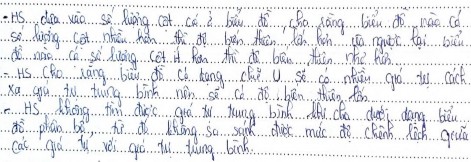 - HS dựa vào số lượng cột có ở biểu đồ, cho rằng biểu đồ nào có
số lượng cột nhiều hơn thì độ biến thiên lớn hơn và ngược lại biểu
đồ nào có số lượng cột ít hơn thì độ biến thiên nhỏ hơn.
- HS cho rằng biểu đồ có dạng chữ U sẽ có nhiều giá trị cách
xa giá trị trung bình nên sẽ có độ biến thiên lớn.
- HS không tìm được giá trị trung bình khi cho dưới dạng biểu
đồ phân bố, từ đó không so sánh được mức độ chênh lệch giữa
các giá trị với giá trị trung bình.